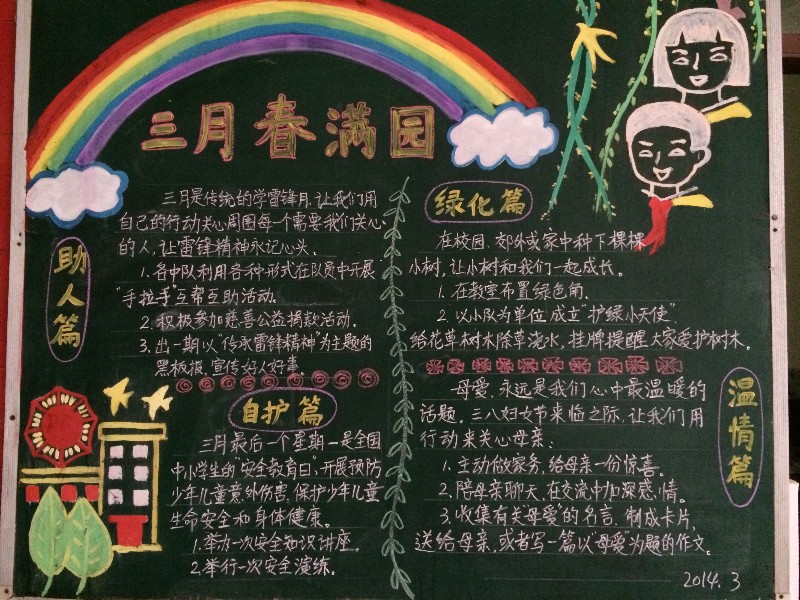 三月春满园
助人篇
三月是传统的学雷锋月，让我们用
自己的行动关心周围每一个需要我们关心
的人，让雷锋精神永记心头。
1.各中队利用各种形式在队员中开展
“手拉手”互帮互助活动。
2.积极参加慈善公益捐款活动。
3.出一期以“传承雷锋精神”为主题的
黑板报，宣传好人好事。
自护篇
三月最后一个星期一是全国
中小学生的“安全教育日”，开展预防
少年儿童意外伤害，保护少年儿童
生命安全和身体健康。
1.举办一次安全知识讲座。
2.举行一次安全演练。
绿化篇
在校园、郊外或家中种下棵棵
小树，让小树和我们一起成长。
1.在教室布置绿色角。
2.以小队为单位，成立“护绿小天使”，
给花草树木除草浇水，挂牌提醒大家爱护树木。
温情篇
母爱，永远是我们心中最温暖的
话题，三八妇女节来临之际，让我们用
行动来关心母亲：
1.主动做家务，给母亲一份惊喜。
2.陪母亲聊天，在交流中加深感情。
3.收集有关“母爱”的名言，制成卡片，
送给母亲，或者写一篇以“母爱”为题的作文。
2014.3